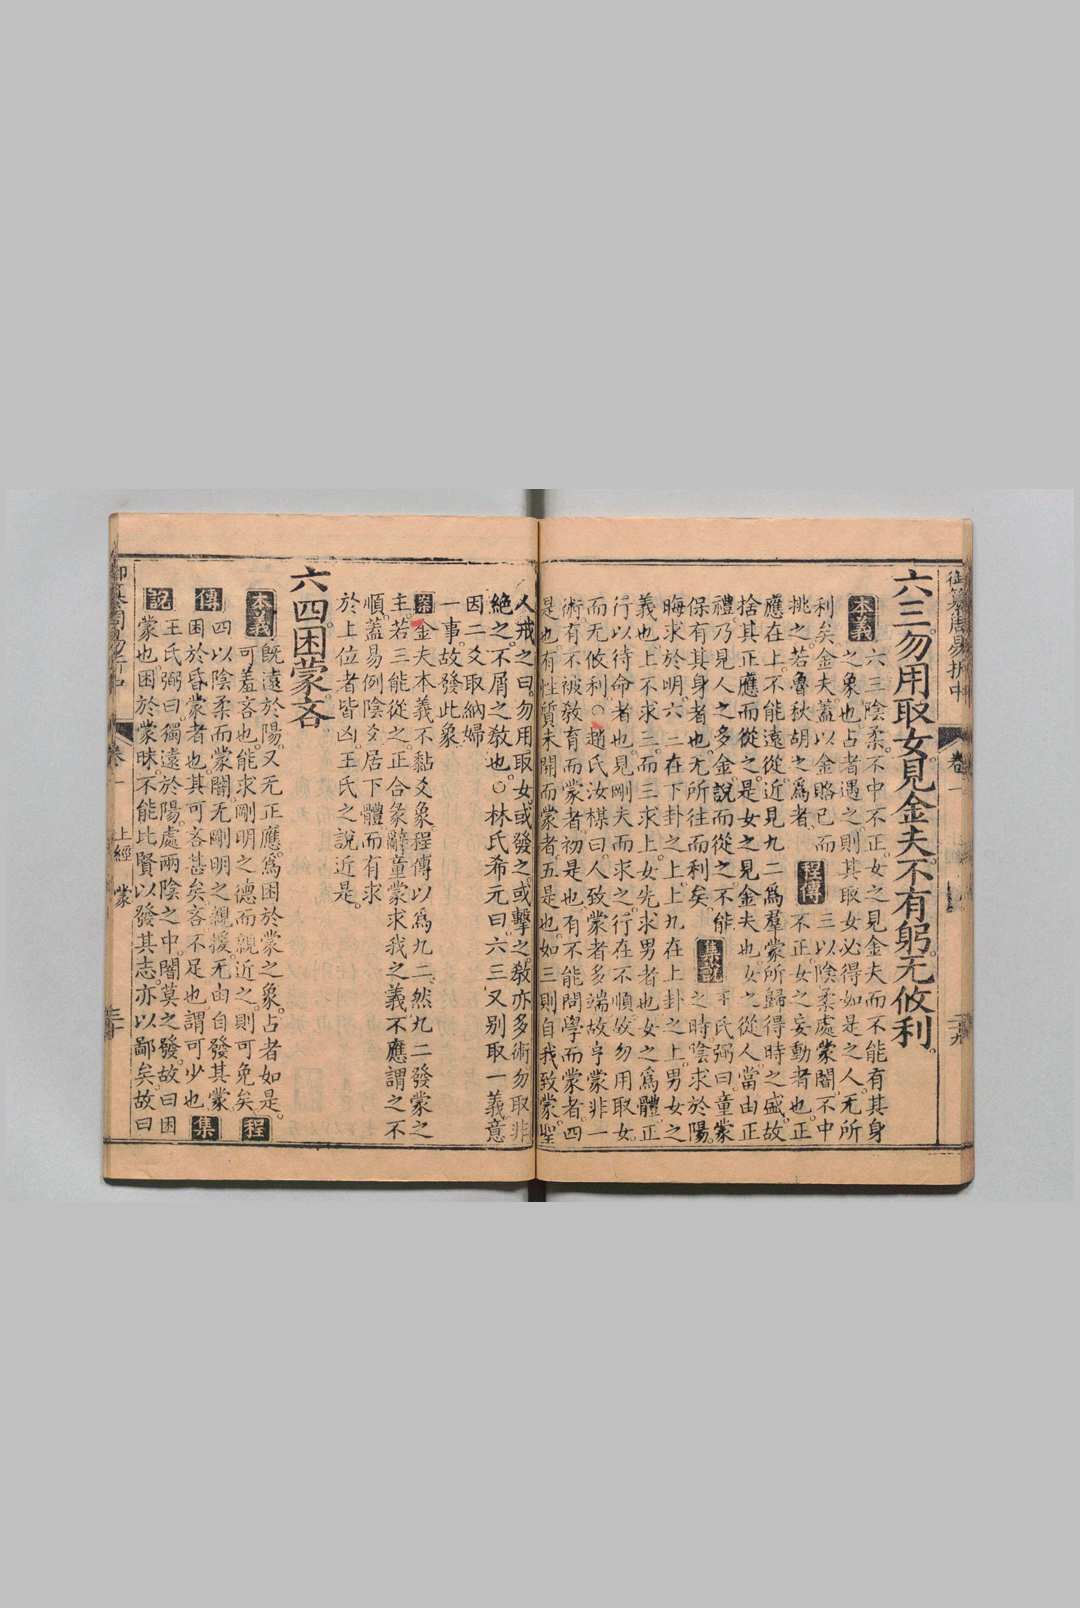 御纂周易折中 卷一
六三勿用取女見金夫不有躬无攸利
本義 六三陰柔不中不正女之見金夫而不能有其身
之象也占者遇之則其取女必得如是之人无所
利矣金夫蓋以金賂己而
挑之若魯秋胡之爲者
程傳 三以陰柔處蒙闇不中
不正女之妄動者也正
應在上不能遠從近見九二爲羣蒙所歸得時之盛故
捨其正應而從之是女之見金夫也女之從人當由正
禮乃見人之多金說而從之不能
保有其身者也无所往而利矣
集說 王氏弼曰童蒙
之時陰求於陽
晦求於明六三在下卦之上上九在上卦之上男女之
義也上不求三而三求上女先求男者也女之爲體正
行以待命者也見剛夫而求之行在不順故勿用取女
而无攸利○趙氏汝楳曰人致蒙者多端故亨蒙非一
術有不被教育而蒙者初是也有不能問學而蒙者四
是也有性質未開而蒙者五是也如三則自我致蒙聖
人戒之曰勿用取女或發之或擊之教亦多術勿取非
絕之不屑之教也○林氏希元曰六三又别取一義意
因二爻取納婦
一事故發此象
案 金夫本義不黏爻象程傳以爲九二然九二發蒙之
主若三能從之正合彖辭童蒙求我之義不應謂之不
順蓋易例陰爻居下體而有求
於上位者皆凶王氏之說近是
六四困蒙吝
本義 既遠於陽又无正應爲困於蒙之象占者如是
可羞吝也能求剛明之德而親近之則可免矣 程
傳 四以陰柔而蒙闇无剛明之親援无由自發其蒙
困於昏蒙者也其可吝甚矣吝不足也謂可少也 集
說 王氏弼曰獨遠於陽處兩陰之中闇莫之發故曰困
蒙也困於蒙昧不能比賢以發其志亦以鄙矣故曰
卷一 上經 蒙 三十